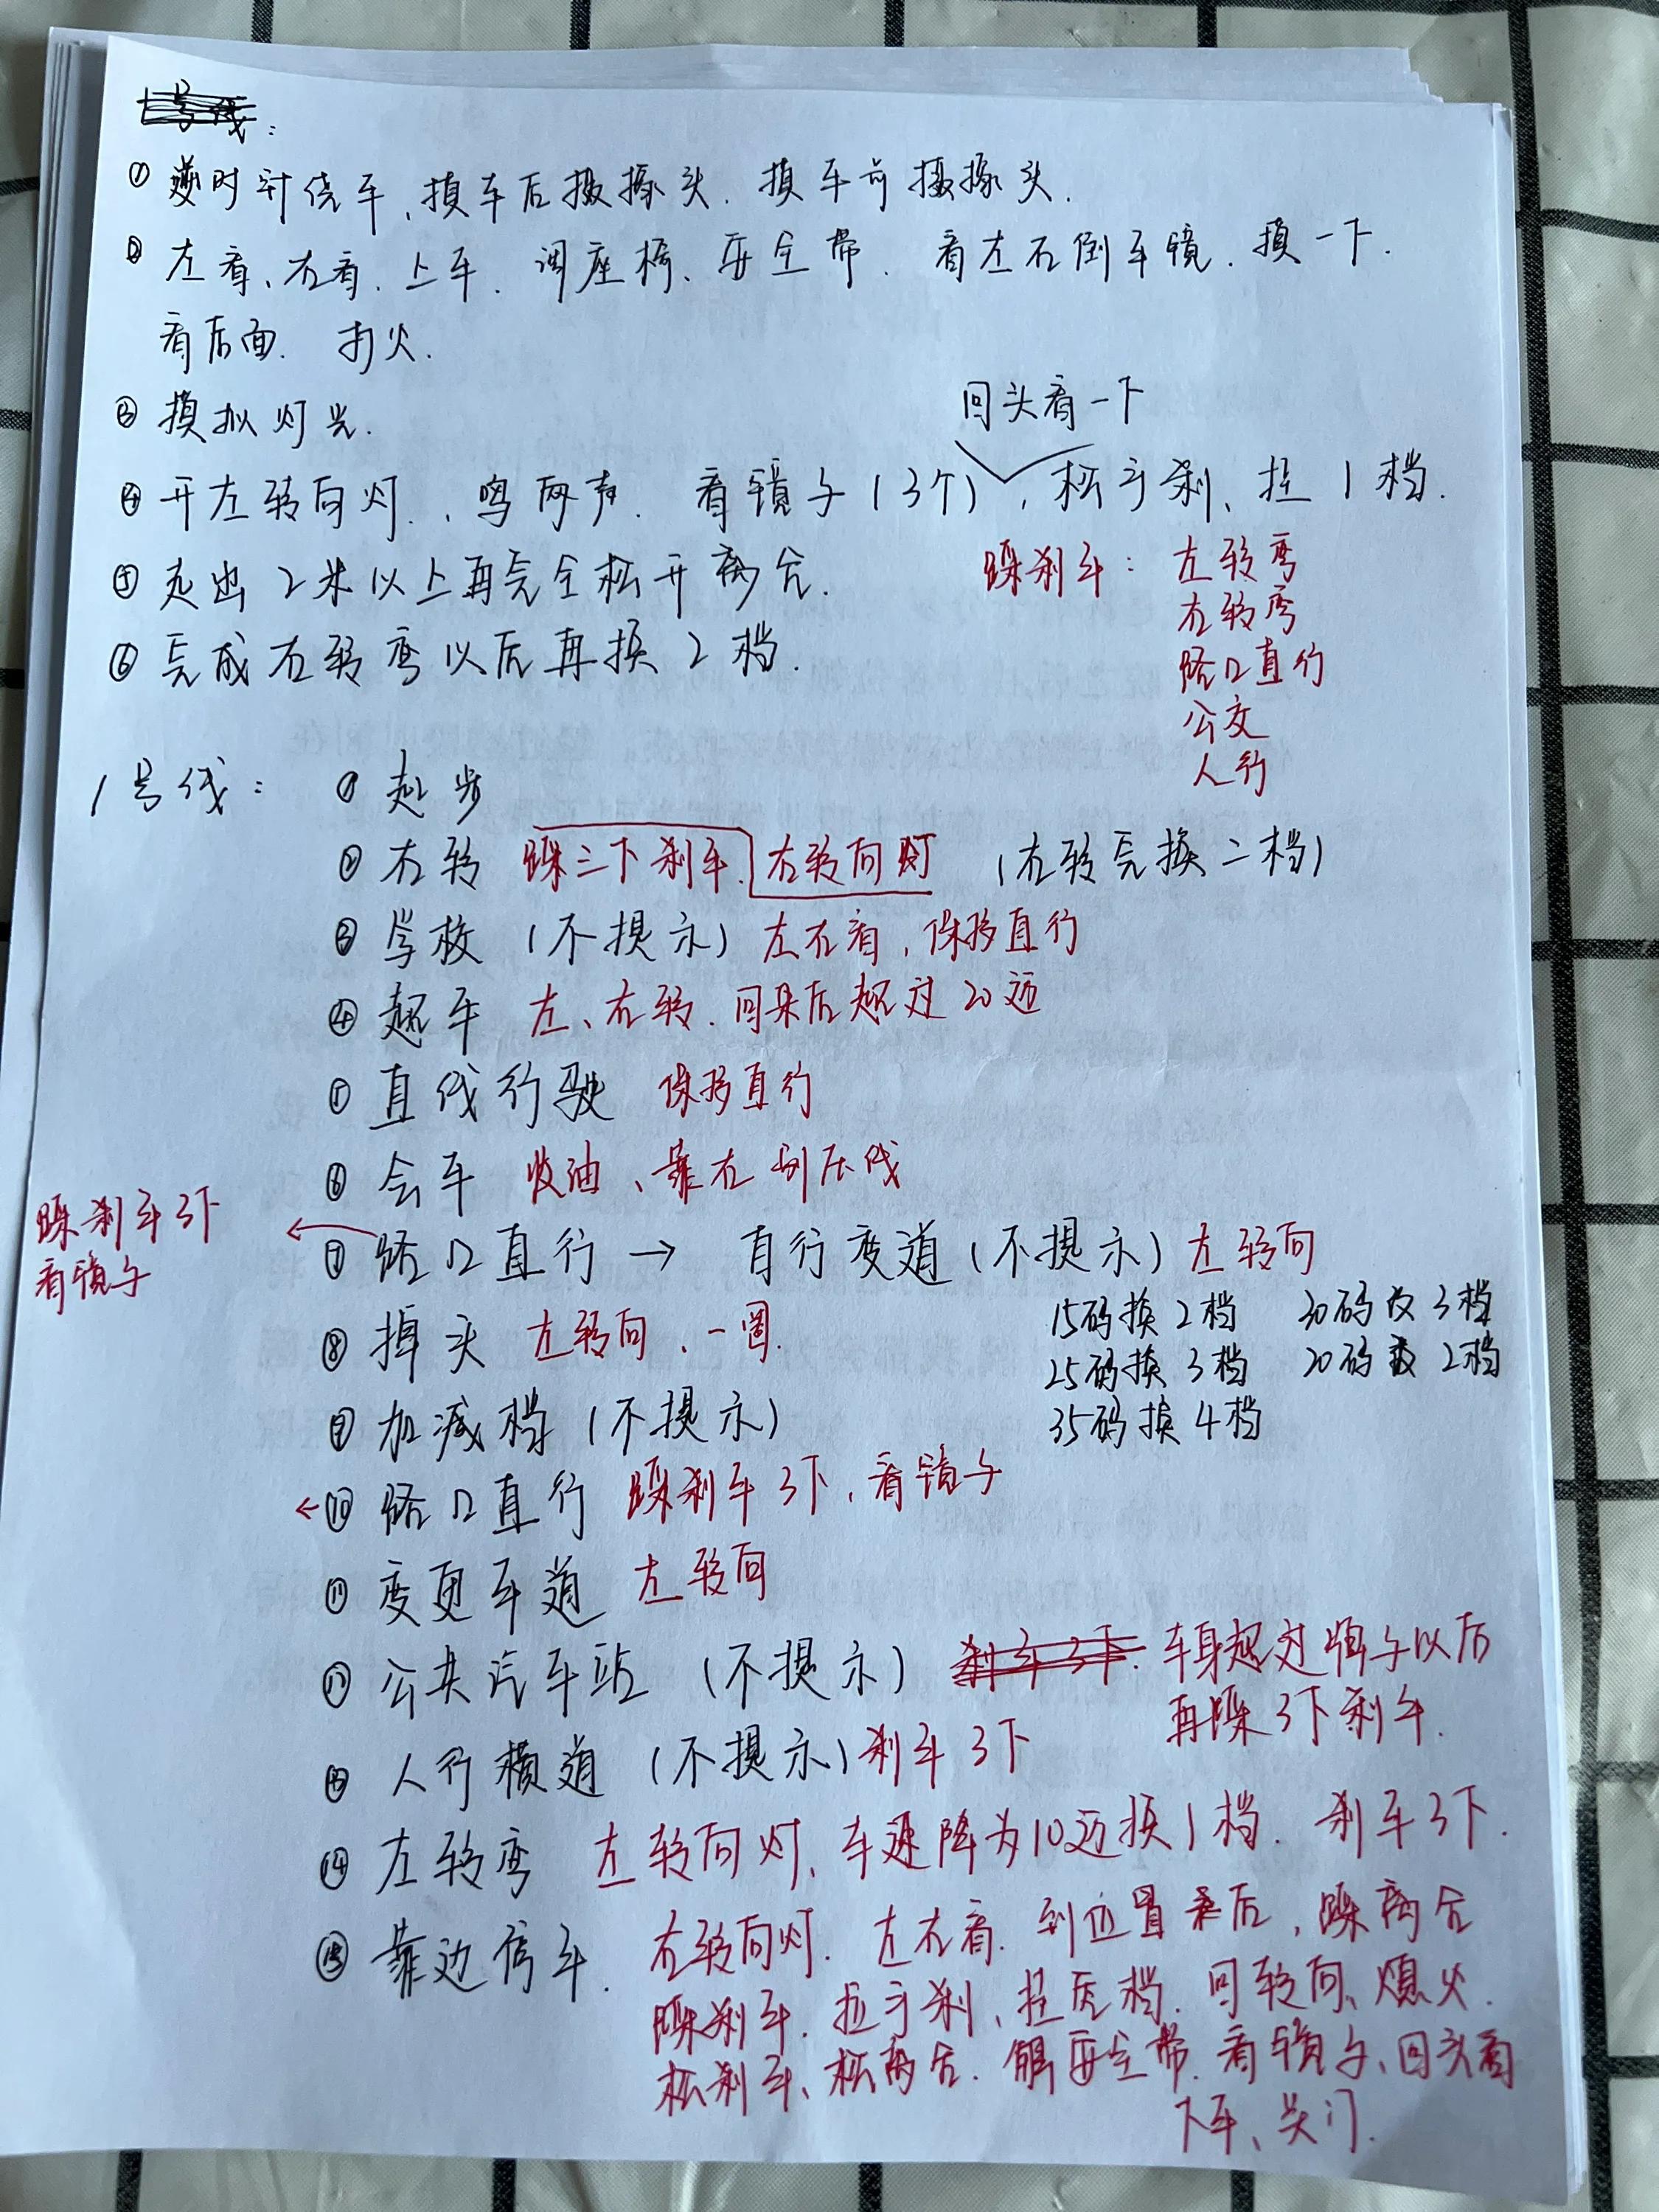 ① 逆时针绕车、摸车后摄像头. 摸车前摄像头.
② 左看、右看. 上车. 调座椅、安全带. 看左右倒车镜. 摸一下.
看后面. 打火.
③ 摸拟灯光.
回头看一下
④ 开左转向灯.、鸣两声. 看镜子(3个), 松手刹、挂1档.
⑤ 走出2米以上再完全松开离合.
踩刹车: 左转弯
右转弯
⑥ 完成右转弯以后再换2档.
路口直行
公交
人行
1号线: ① 起步
② 右转 踩三下刹车. 右转向灯 (右转完换二档)
③ 学校 (不提示) 左右看, 保持直行
④ 超车 左、右转. 回来后超过20迈
⑤ 直线行驶 保持直行
⑥ 会车 收油、靠右别压线
踩刹车3下
看镜子
⑦ 路口直行 → 自行变道(不提示) 左转向
⑧ 掉头 左转向、一圈.
15码换2档 30码改3档
25码换3档 20码 2档
35码换4档
⑨ 加减档 (不提示)
⑩ 路口直行 踩刹车3下, 看镜子
⑪ 变更车道 左转向
⑫ 公共汽车站 (不提示) 刹车3下. 车身超过牌子以后
再踩3下刹车.
⑬ 人行横道 (不提示) 刹车3下
⑭ 左转弯 左转向灯、车速降为10迈换1档. 刹车3下.
⑮ 靠边停车. 右转向灯. 左右看. 到位置后, 踩离合
踩刹车. 拉手刹、挂空档. 回转向、熄火.
松刹车、松离合. 解安全带. 看镜子、回头看
下车、关门.